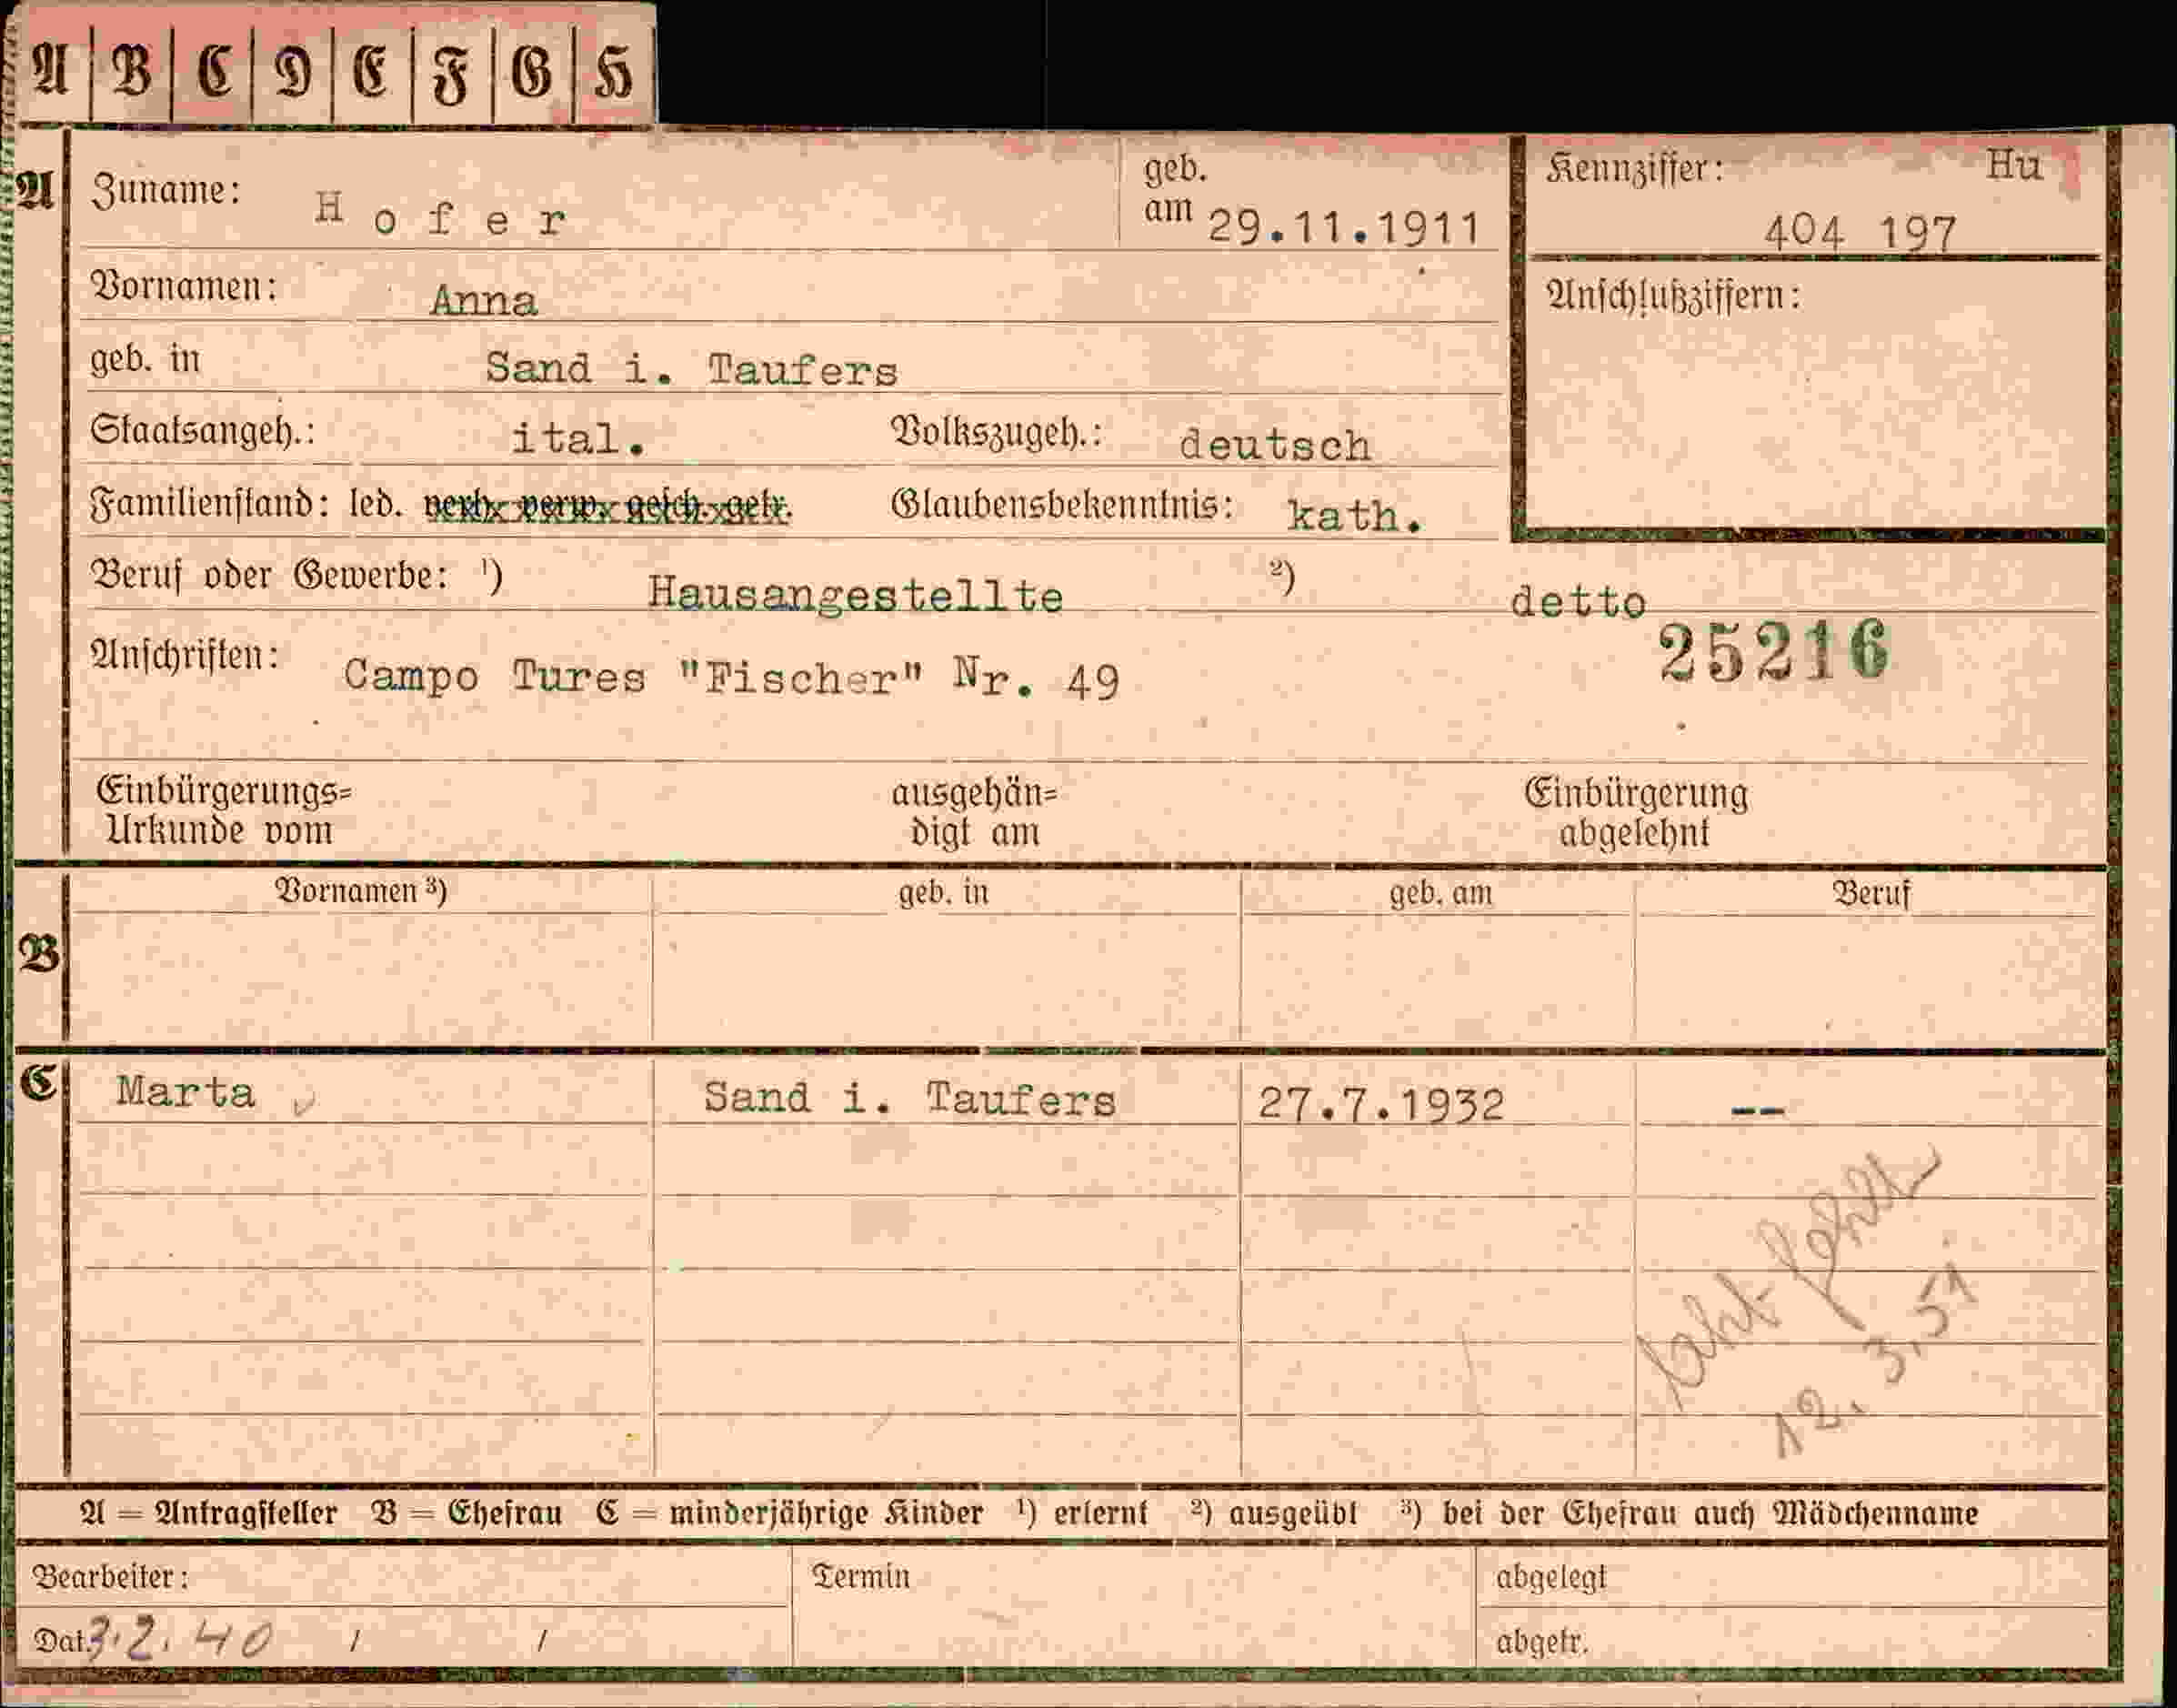 A B C D E F G H
A Zuname: Hofer geb. am 29.11.1911 Kennziffer: Hu 404 197
Vornamen: Anna Anschlußziffern:
geb. in Sand i. Taufers
Staatsangeh.: ital. Volkszugeh.: deutsch
Familienstand: led. verh. verw. gesch. getr. Glaubensbekenntnis: kath.
Beruf oder Gewerbe: ¹) Hausangestellte ²) detto
25216
Anschriften: Campo Tures "Fischer" Nr. 49
Einbürgerungs= ausgehän= Einbürgerung
Urkunde vom digt am abgelehnt
Vornamen ³) geb. in geb. am Beruf
B
C Marta Sand i. Taufers 27.7.1932 --
12.3.51
A = Antragsteller B = Ehefrau C = minderjährige Kinder ¹) erlernt ²) ausgeübt ³) bei der Ehefrau auch Mädchenname
Bearbeiter: Termin abgelegt
Dat. 3.2.40 / / abgetr.